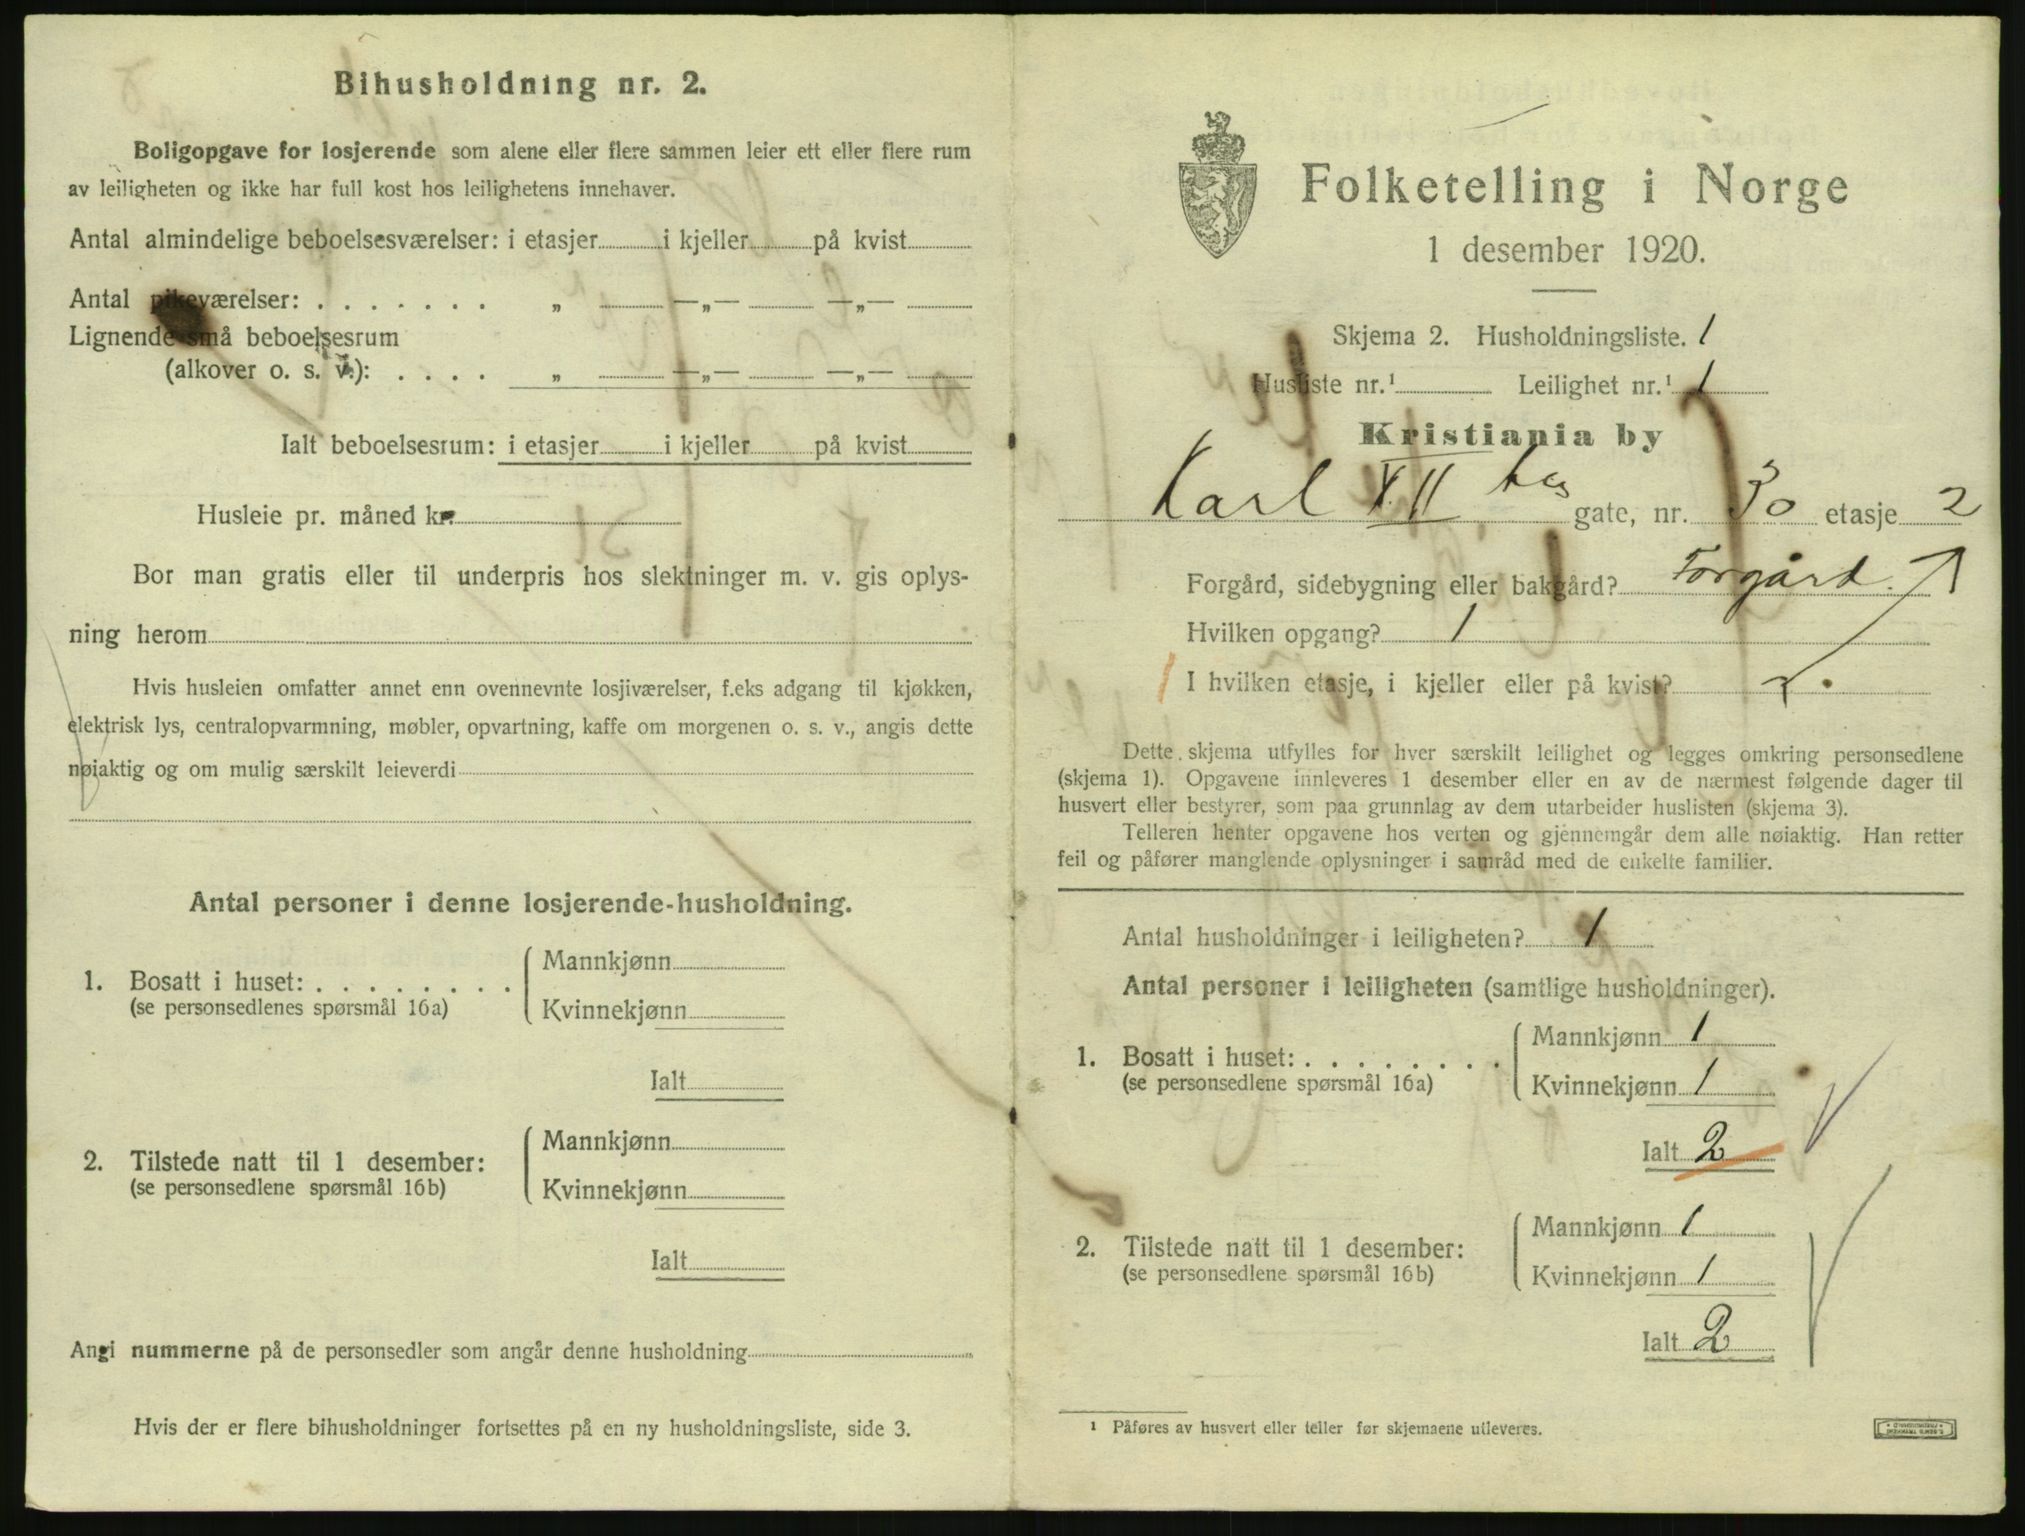 Bihusholdning nr. 2.
Boligopgave for losjerende som alene eller flere sammen leier ett eller flere rum
av leiligheten og ikke har full kost hos leilighetens innehaver.
Antal almindelige beboelsesværelser: i etasjer i kjeller på kvist
Antal pikeværelser: . . . . . . . „ —„— —„—
Lignende små beboelsesrum
(alkover o. s. v.): . . . . „ —„— —„—
Ialt beboelsesrum: i etasjer i kjeller på kvist
Husleie pr. måned kr.
Bor man gratis eller til underpris hos slektninger m. v. gis oplys-
ning herom
Hvis husleien omfatter annet enn ovennevnte losjiværelser, f.eks adgang til kjøkken,
elektrisk lys, centralopvarmning, møbler, opvartning, kaffe om morgenen o. s. v., angis dette
nøiaktig og om mulig særskilt leieverdi
Antal personer i denne losjerende-husholdning.
1. Bosatt i huset: . . . . . . . . Mannkjønn
(se personsedlenes spørsmål 16a) Kvinnekjønn
Ialt
2. Tilstede natt til 1 desember: Mannkjønn
(se personsedlene spørsmål 16b) Kvinnekjønn
Ialt
Angi nummerne på de personsedler som angår denne husholdning
Hvis der er flere bihusholdninger fortsettes på en ny husholdningsliste, side 3.
Folketelling i Norge
1 desember 1920.
Skjema 2. Husholdningsliste. 1
Husliste nr.¹ Leilighet nr.¹ 1
Kristiania by
Karl XII tes gate, nr. 30 etasje 2
Forgård, sidebygning eller bakgård? Forgård.
Hvilken opgang? 1
1 I hvilken etasje, i kjeller eller på kvist? 2.
Dette skjema utfylles for hver særskilt leilighet og legges omkring personsedlene
(skjema 1). Opgavene innleveres 1 desember eller en av de nærmest følgende dager til
husvert eller bestyrer, som paa grunnlag av dem utarbeider huslisten (skjema 3).
Telleren henter opgavene hos verten og gjennemgår dem alle nøiaktig. Han retter
feil og påfører manglende oplysninger i samråd med de enkelte familier.
Antal husholdninger i leiligheten? 1
Antal personer i leiligheten (samtlige husholdninger).
1. Bosatt i huset: . . . . . . . . Mannkjønn 1
(se personsedlene spørsmål 16a) Kvinnekjønn 1
Ialt 2
2. Tilstede natt til 1 desember: Mannkjønn 1
(se personsedlene spørsmål 16b) Kvinnekjønn 1
Ialt 2
¹ Påføres av husvert eller teller før skjemaene utleveres.